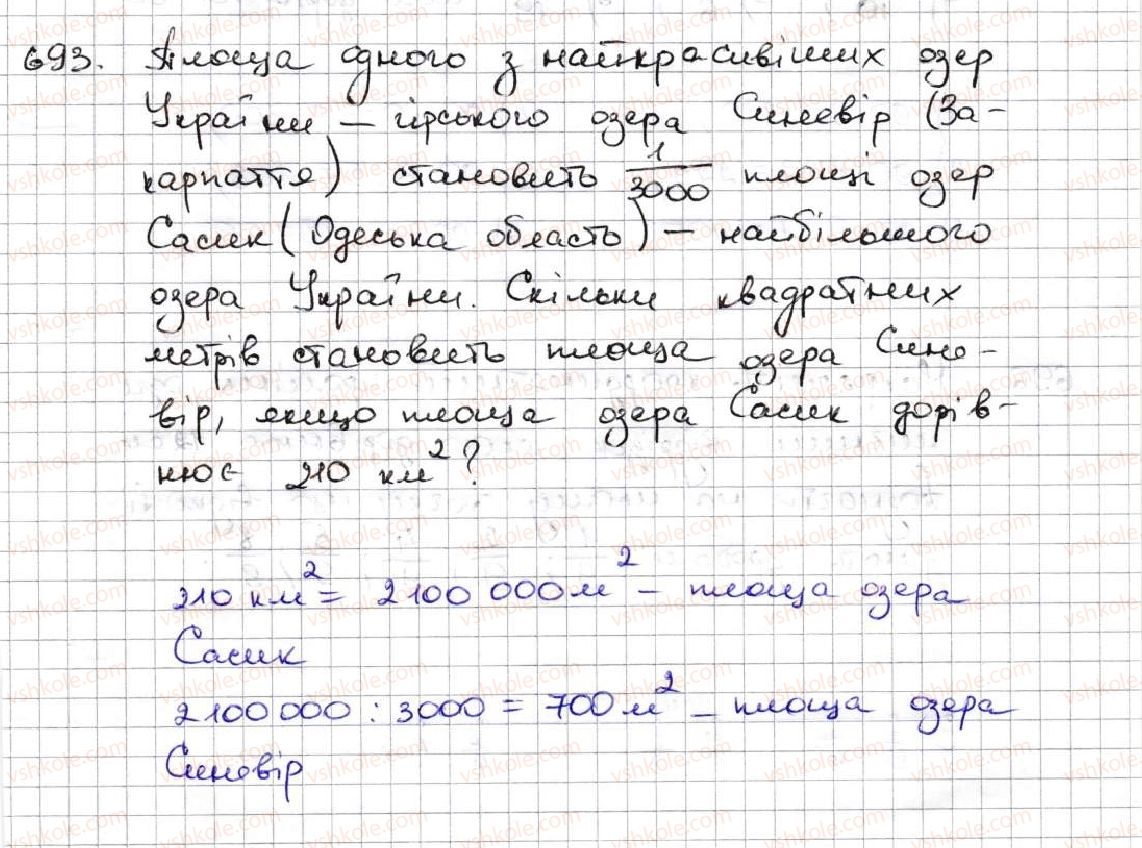 693. Площа одного з найкрасивіших озер
України – гірського озера Синевір (За-
карпаття) становить 1/3000 площі озер
Сасик (Одеська область) – найбільшого
озера України. Скільки квадратних
метрів становить площа озера Сине-
вір, якщо площа озера Сасик дорів-
нює 210 км²?
210 км² = 2100 000 м² – площа озера
Сасик
2100 000 : 3000 = 700 м² – площа озера
Синевір